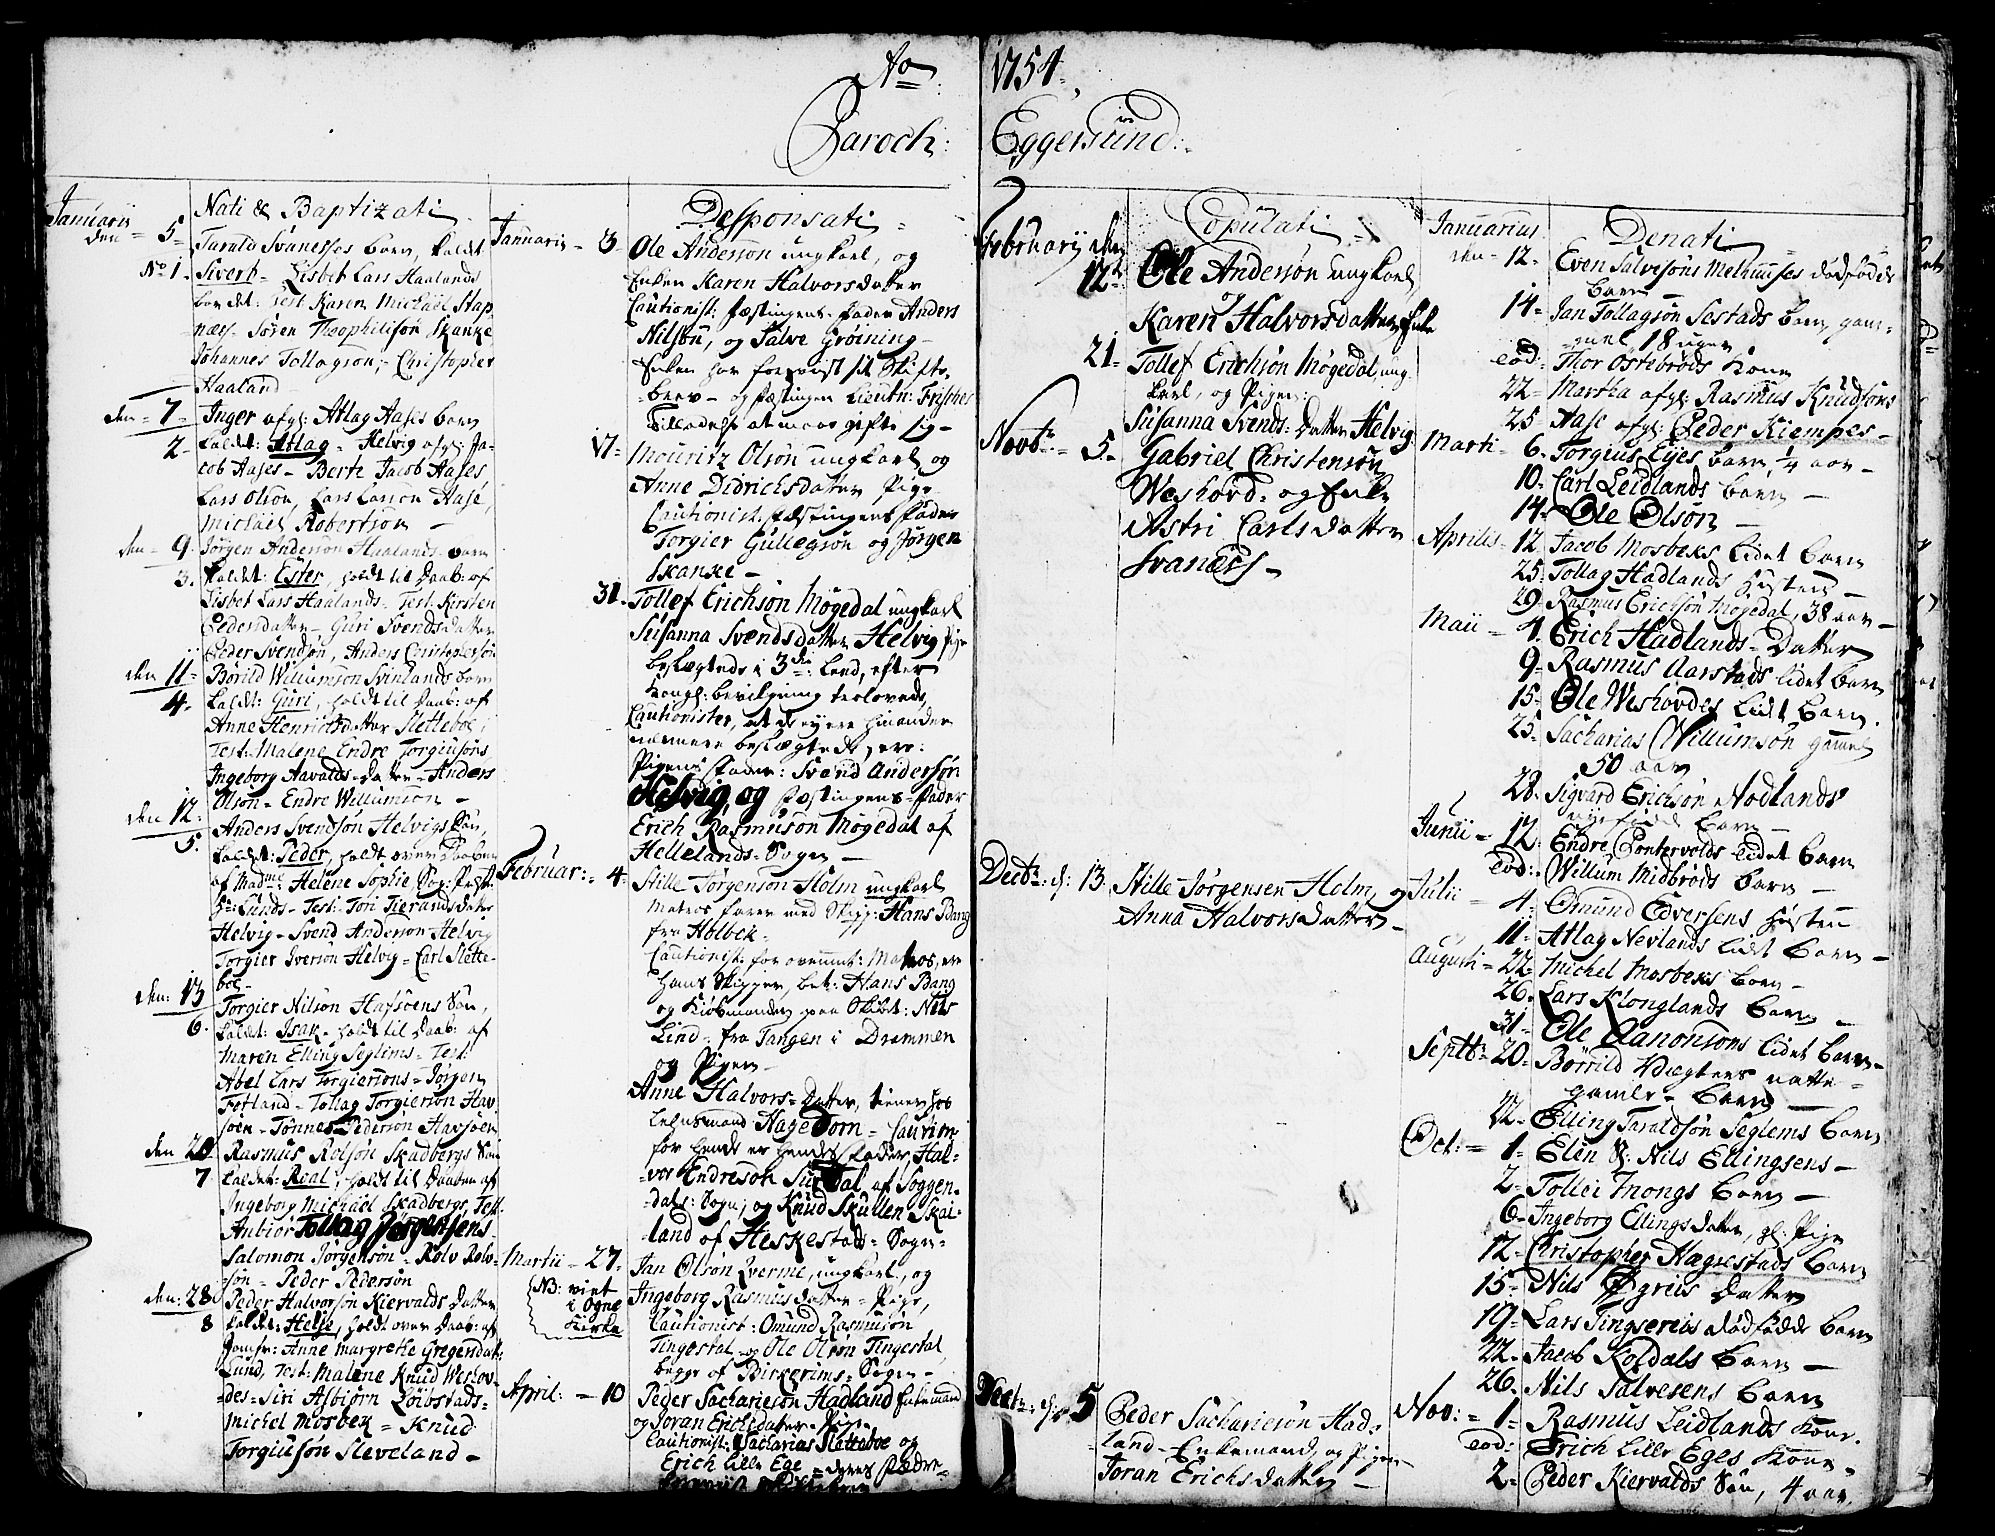 Ao 1754.
Paroch: Eggersund:
Nati & Baptizati
Januarii
den = 5 = Tarald Svanesses barn, kaldet
No 1. Sivert - Lisbet Lars Haalands
bar det: Test: Karen Michael Stap
næs - Sören Theophilisön Skanke
Johannes Tollagsön, - Christopher
Haaland
den = 7 - Inger afgl: Atlag Aases barn
2 - kaldet: Atlag = Helvig afgl: Ja-
cob Aases - Berte Jacob Aases
Lars Olson, Lars Larson Aase,
Michael Robertson -
den - 9. Jörgen Anderson Haalands barn
3. kaldet: Ester, holdt til Daab: af
Lisbet Lars Haalands = Test: Kirsten
Pedersdatter - Guri Svendsdatter
Peder Svendsön, Anders Christophersön
den 11 - Börild Willumson Svinlands barn
4 - kaldt: Guri, holdt til Daab: af
Anne Henrichsdatter Sletteboe;
Test: Malene Endre Torgiusöns
Ingeborg Aavalds-Datter - Anders
Olson - Endre Willumson -
den 12: Anders Svendsön Helvigs Sön,
5. kaldet: Peder, holdt over Daaben
af Madme: Helene Sophie Sog: Præst
Hr: Lunds - Test: Tori Tierandsdatter
Helvig - Svend Anderson Helvig
Torgier Iverson Helvig = Carl Slette-
boe -
den: 13 Torgier Nilson Hafsöens Sön,
6. kaldet: Isak - holdt til Daab: af
Maren Elling Seglems = Test:
Abel Lars Torgiersöns = Jörgen
Fotland - Tollag Torgierson Hav
söen - Tönnes Pederson Havsöen
den 20 Rasmus Rolsön Skadbergs Sön
7 kaldet: Roal, holdt til Daaben af
Ingeborg Michael Skadbergs, Test:
Anbiör Tollag Jörgensens
Salomon Jörgensön - Rolv Rolv-
sön - Peder Pedersön
den: 28 Peder Halvorsön Kiervalds Datter
8 kaldet: Helje, holdt over Daab: af
Jomfr: Anne Margrethe Gregersdatter
Lund, Test: Malene Knud Weshov-
des = Siri Asbiörn Löibstads =
Michel Mosbek = Knud
Torgiusön Sleveland -
Desponsati =
Januarii - 3 - Ole Anderson ungkarl, og
Enken Karen Halvors datter
Cautionist: Fæstingens Fader Anders
Nilson, og Salve Gröining -
Enken har forevist sit Skifte-
brev - og Fæstingen Lieutn: Frisches
Tilladelse at maae gifte sig -
17 - Mouritz Olsön ungkarl og
Anne Didrichsdatter Pige
Cautionist: Fæstingens Fader
Torgier Gullegsön og Jörgen
Skanke -
31 - Tollef Erichsön Mögedal ungkarl
Susanna Svends datter Helvig Pige
beslægtede i 3die Leed, efter
Kongl: bevilgning trolovede,
Cautionister, at de ey ere hinanden
nærmere beslægtede, ere:
Pigens Fader: Svend Andersön
Helvig, og Fæstingens Fader
Erich Rasmuson Mögedal af
Hellelands Sogn -
Februar: = 4 - Stille Jörgenson Holm ungkarl
Matros farer med Skipp: Hans Bang
fra Holbek -
Cautionist: for ovenmt: Matros, ere
hans Skipper, bet: Hans Bang
og Kiöbmanden paa Skibet: Nils
Lind = fra Tangen i Drammen
og Pigen -
Anne Halvors = Datter, tiener hos
Lensmand Hagedorn = Caution
for hende er hendes Fader Hal-
vor Endreson Surdal af Soggen-
dals: Sogn; og Knud Skullen Skai-
land af Heskestads - Sogn -
Martii - 27 - Jan Olsön Qverme, ungkarl, og
(NB: viet i Ogne Kirke) Ingeborg Rasmusdatter = Pige,
Cautionist: Omund Rasmuson
Tingestal og Ole Olson Tingestal,
begge af Birkerims - Sogn -
April: - 10 Peder Sachariesön Hadland Enkemand
og Joran Erichsdatter - Pige -
Cautionist: Sacharias Sletteboe og
Erich lille Ege = deres Fædre -
Copulati =
Februarii den
12te Ole Anderson ungkarl,
og
Karen Halvorsdatter Enke
21 - Tollef Erichsön Mögedal ung-
karl, og Pigen:
Susanna Svends: Datter Helvig
Novbr: = 5 - Gabriel Christensön
Weshovd = og Enke
Astri Carls datter
Svanæss -
Decbr: d: 13 Stille Jörgensen Holm, og
Anna Halvorsdatter -
Decbr: d: 5 Peder Sachariesön Had-
land - Enkemand, og Pigen
Joran Erichs datter -
Denati =
Januarius
den - 12. Even Salvesöns Melhuuses dödfödde
barn -
14 - Jan Tollagsön Sestads barn, gam-
mel 18 uger
eod: Thor Ostebröds Kone
22 - Martha afgl: Rasmus Knudsöns
25 Aase afgl: Peder Kiempes -
Marti - 6. Torgius Eijes barn, 1/4 aar -
10 - Carl Leidlands barn -
14 - Ole Olson -
Aprilis = 12 Jacob Mosbeks lidet barn
25 Tollag Hadlands Hustru -
29 - Rasmus Erichsön Mögedal, 38 aar -
Maii - 4. Erich Hadlands - Datter
9 - Rasmus Aarstads lidet barn
15 - Ole Weshovdes lidt barn.
25 - Sacharias Willumson gammel
50 aar
28 - Sigvard Erichsön Nodlands
nyefödde barn -
Junii = 12 - Endre Pontervolds lidet barn
eod: Willum Midbröds barn -
Julii = 4 - Omund Edversens Hustru
11 - Atlag Nevlands lidt barn -
Augusti = 22 - Michel Mosbeks barn -
26. Lars Klonglands barn -
31 - Ole Aanonsöns lidet barn -
Septbr - 20 - Börrild Vægters natte =
gamle - barn -
22 - Elling Taraldsön Seglems barn
Oct: = 1 - Elen S: Nils Ellingsens -
2 - Tollei Mongs barn -
6 - Ingeborg Ellings datter, gl: Pige
12 - Christopher Hægrestads barn
15 - Nils Ögreis Datter
19 - Lars Tingsereis dödfödde barn
22 - Jacob Koldals barn -
26. Nils Salvesens barn
Nov: = 1 - Rasmus Leidlands Kone.
eod: Erich lille Eges Kone -
2 - Peder Kiervalds Sön, 4 aar.